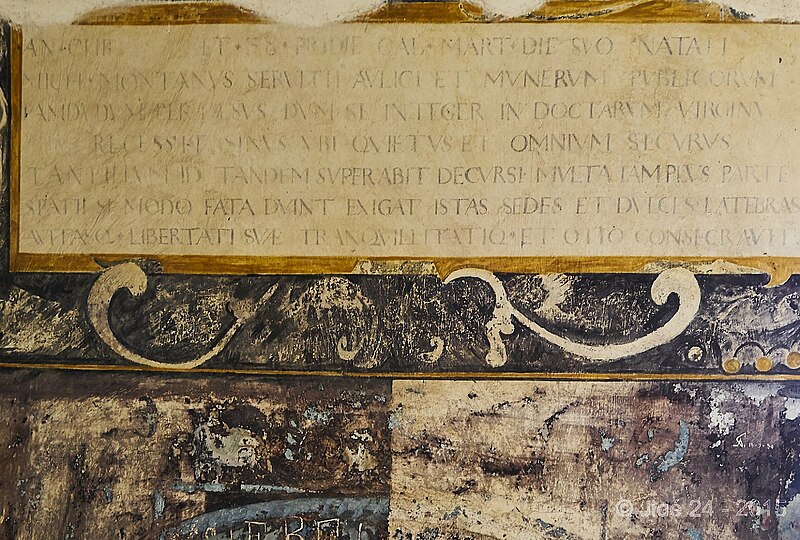 AN CHR ET · 38 · PRIDIE CAL · MART · DIE SVO NATALI
MICH · MONTANVS SERVITII AVLICI ET MVNERVM PVBLICORVM
IAMDVDVM PERTAESVS DVM SE INTEGER IN DOCTARVM VIRGINV
RECESSIT SINVS VBI QVIETVS ET OMNIVM SECVRVS
TANTILLVM ID TANDEM SVPERABIT DECVRSI MVLTA IAM PLVS PARTE
SPATII SI MODO FATA DVINT EXIGAT ISTAS SEDES ET DVLCES LATEBRAS
AVITASQ · LIBERTATI SVÆ TRANQVILLITATIQ · ET OTIO CONSECRAVIT
© Jias 24 - 2015